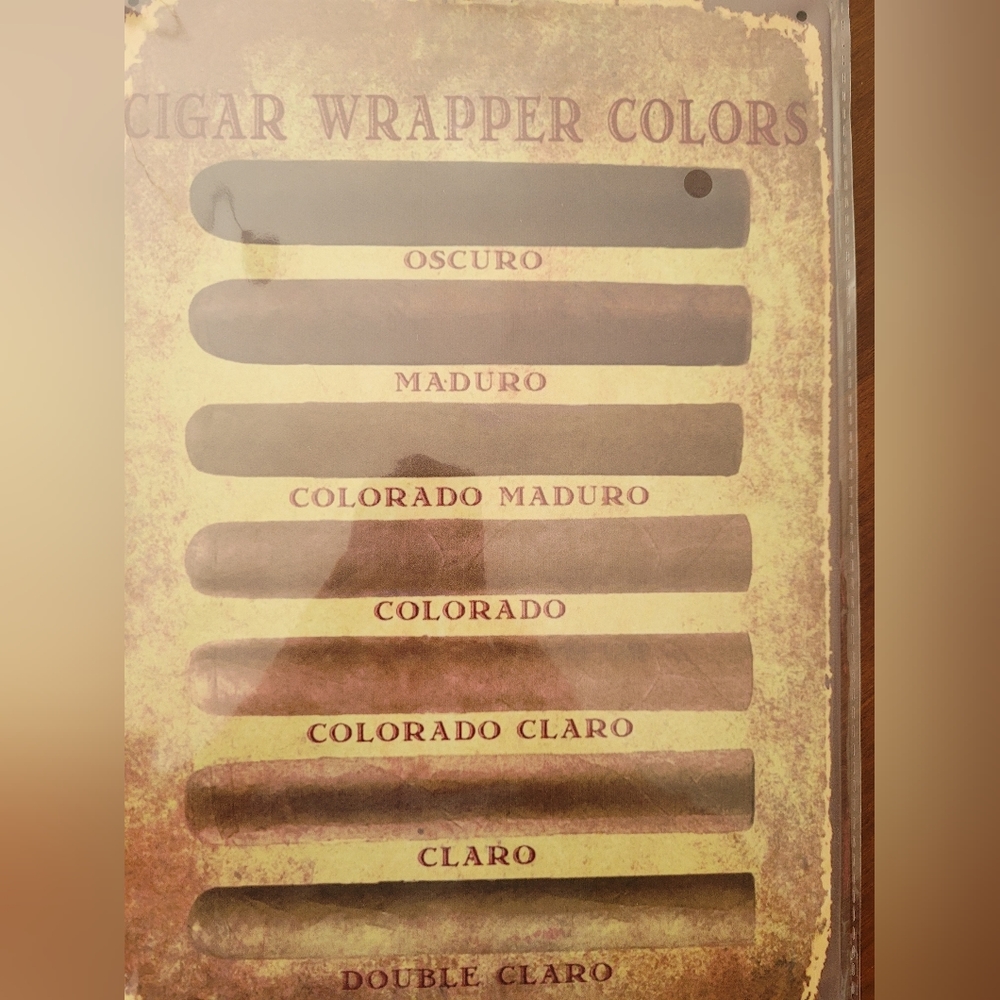 CIGAR WRAPPER COLORS
OSCURO
MADURO
COLORADO MADURO
COLORADO
COLORADO CLARO
CLARO
DOUBLE CLARO